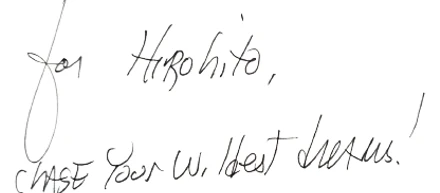 for Hirohito,
CHASE Your Wildest dreams!